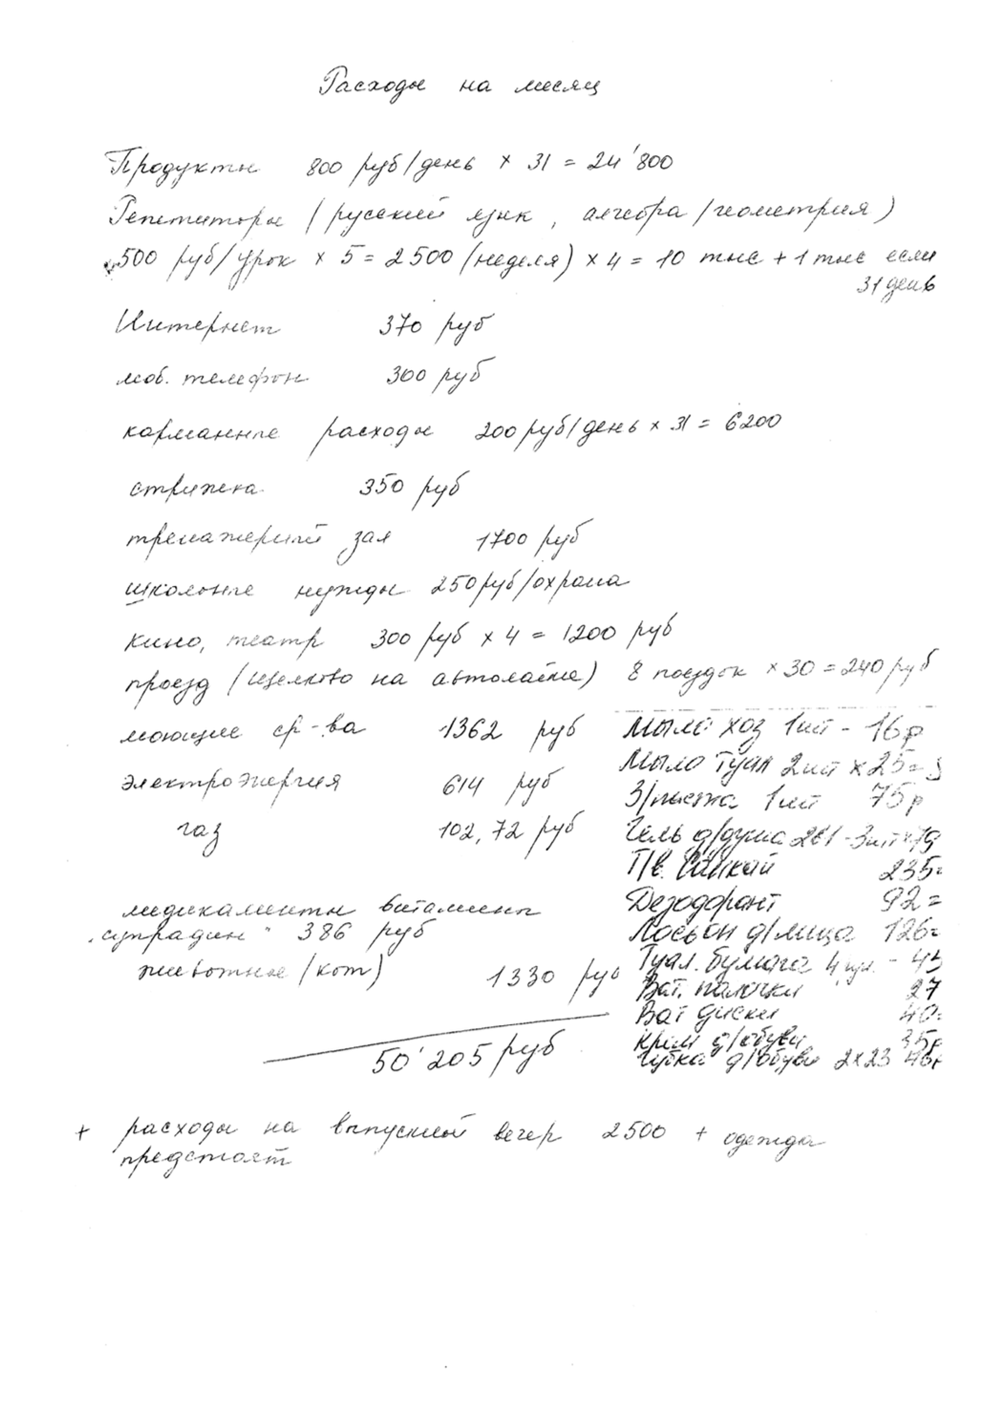 Расходы на месяц
Продукты 800 руб/день × 31 = 24'800
Репетиторы (русский язык, алгебра/геометрия)
500 руб/урок × 5 = 2500 (неделя) × 4 = 10 тыс + 1 тыс если
31 день
Интернет 370 руб
моб. телефон 300 руб
карманные расходы 200 руб/день × 31 = 6200
стрижка 350 руб
тренажерный зал 1700 руб
школьные нужды 250 руб/охрана
кино, театр 300 руб × 4 = 1200 руб
проезд (Щелково на автолайне) 8 поездок × 30 = 240 руб
моющие ср-ва 1362 руб
электроэнергия 614 руб
газ 102,72 руб
медикаменты витамины
"супрадин" 386 руб
животные (кот) 1330 руб
50'205 руб
Мыло хоз 1шт - 16р
Мыло туал 2шт × 25=
З/паста 1шт 75р
Гель д/душа 261 - 3шт × 79
Т/в. 235=
Дезодорант 92=
Лосьон д/лица 126=
Туал. бумага 4 рул. - 45
Ват. палочки 27
Ват диски 40=
Крем д/обуви 35р
Губка д/обуви 2×23 46р
+ расходы на выпускной вечер 2500 + одежда
предстоят